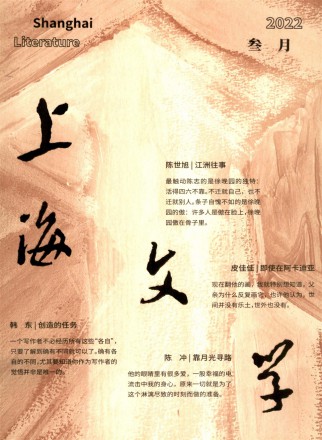 Shanghai
Literature
2022
叁月
上海文学
陈世旭 | 江洲往事
最触动陈志的是徐晚园的独特：
活得四六不靠。不迁就自己，也不
迁就别人。条子自愧不如的是徐晚
园的傲：许多人是傲在脸上，徐晚
园傲在骨子里。
皮佳佳 | 即使在阿卡迪亚
现在翻他的画，我就特别想知道，父
亲为什么反复画它，也许他认为，世
间并没有乐土，世外也没有。
韩 东 | 创造的任务
一个写作者不必经历所有这些“各自”，
只要了解到确有不同就可以了。确有各
自的不同，尤其要知道你作为写作者的
觉悟并非是唯一的。
陈 冲 | 靠月光寻路
他的眼睛里有很多爱，一股幸福的电
流击中我的身心。原来一切就是为了
这个淋漓尽致的时刻而做的准备。